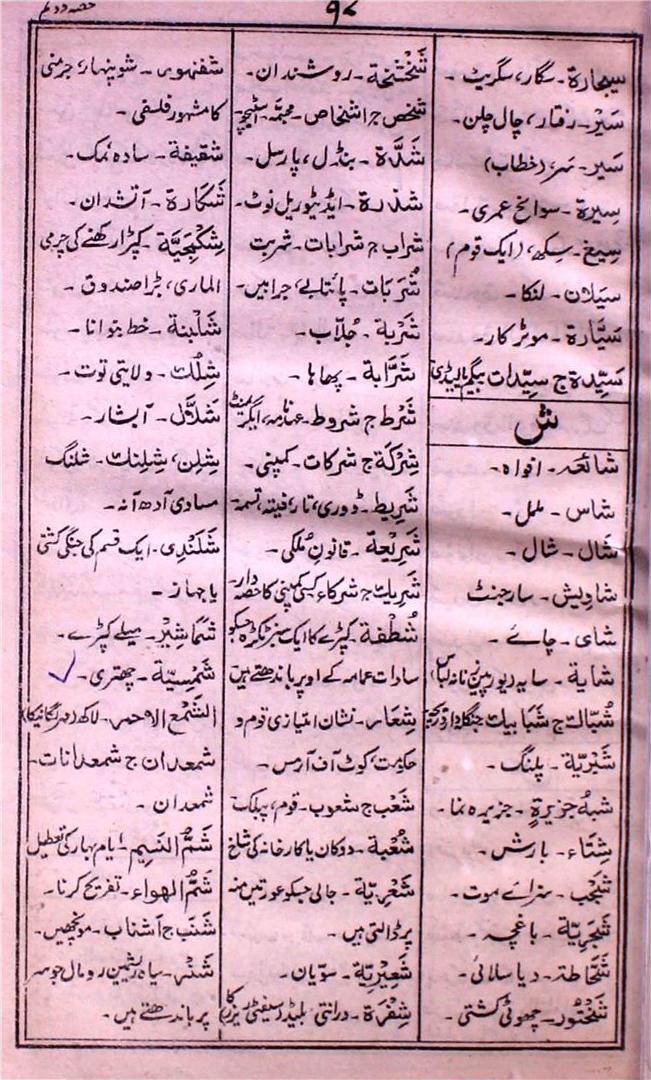 حصہ دوم
۹۸
سیجارۃ۔ سگار، سگریٹ۔
سَیْر۔ رفتار، چال چلن۔
سَیر۔ سَر، (خطاب)
سِیرۃ۔ سوانح عمری۔
سِیخ۔ سِکھ، (ایک قوم)
سَیلان۔ لنکا۔
سَیَّارۃ۔ موٹر کار۔
سَیِّدۃ ج سیِّدات بیگم (لیڈی)
ش
شائعہ۔ افواہ۔
شاس۔ ململ۔
شَال۔ شال۔
شاوِیش۔ سارجنٹ
شای۔ چائے۔
شایۃ۔ سایہ
شُبّاك ج شَبَابِيك
شَبْرِیَّۃ۔ پلنگ۔
شبهُ جزیرۃٍ۔ جزیرہ نما۔
شِتَاء۔ بارش۔
شَجَب۔ سزائے موت۔
شَجَرِیَّۃ۔ باغچہ۔
شَحَّاطۃ۔ دیا سلائی۔
شَخْتُور۔ چھوٹی کشتی۔
شَخْشَخَۃ۔ روشندان۔
شخص ج اشخاص۔ مجسّمہ۔ اسٹیچو۔
شَدَّۃ۔ بنڈل، پارسل۔
شذرۃ۔ ایڈیٹوریل نوٹ۔
شراب ج شرابات۔ شربت
شُرَبَات۔ پائتابے، جرابیں۔
شَرْبَۃ۔ جُلّاب۔
شَرَّابۃ۔ پھاہا۔
شَرْط ج شروط۔ عہدنامہ، ایگریمنٹ
شِرْکَۃ ج شرکات۔ کمپنی۔
شَرِیط۔ ڈوری، تار، فیتہ، تسمہ۔
شَرِیعۃ۔ قانونِ مُلکی۔
شَرِیك ج شرکاء کسی کمپنی کا حصّہ دار۔
شُطْفَۃ۔ کپڑے کا ایک سبز ٹکڑہ جسکو
سادات عمامہ کے اوپر باندھتے ہیں
شِعَار۔ نشان امتیازی قوم و
حکومت، کوٹ آف آرمس۔
شَعْب ج شعوب۔ قوم، پبلک
شُعْبۃ۔ دوکان یا کارخانہ کی شاخ
شَعْرِیّۃ۔ جالی جسکو عورتیں منہ
پر ڈالتی ہیں۔
شَعِیْرِیَّۃ۔ سوّیاں۔
شِفْرَۃ۔ درانتی، بلیڈ (سیفٹی ریزر کا)
شفنہور۔ شوپنہار، جرمنی
کا مشہور فلسفی۔
شقیفۃ۔ سادہ نمک۔
شَکَارۃ۔ آتشدان۔
شِکْمَجِیَّۃ۔ کپڑا رکھنے کی چرمی
الماری، بڑا صندوق۔
شَلْبنۃ۔ خط بنوانا۔
شِلِّك۔ ولایتی توت۔
شَلَّال۔ آبشار۔
شِلِن، شِلِنك۔ شلنگ
مساوی آدھ آنہ۔
شَلَنْدِی۔ ایک قسم کی جنگی کشتی
یا جہاز۔
شَمَاشِیْر۔ میلے کپڑے۔
شَمْسِیَّۃ۔ چھتری۔
الشَّمْع الاحمر۔ لاکھ
شمعدان ج شمعدانات۔
شمعدان۔
شَمُّ النَّسِیم۔ ایام بہار کی تعطیل
شَمُّ الهواء۔ تفریح کرنا۔
شَنَب ج اَشناب۔ مونچھیں۔
شَنْبر۔ سیاہ ریشمین رومال جو سر
پر باندھتے ہیں۔